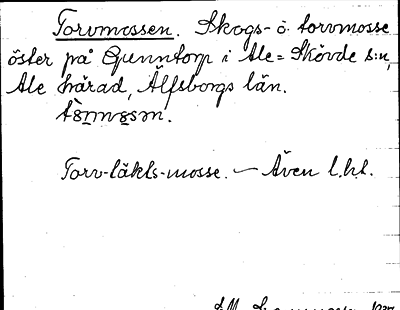 Torvmossen. Skogs- o. torvmosse
öster på Gunntorp i Ale-Skövde s:n,
Ale härad, Älfsborgs län.
Torv-läkls-mosse. — Även l.h.l.